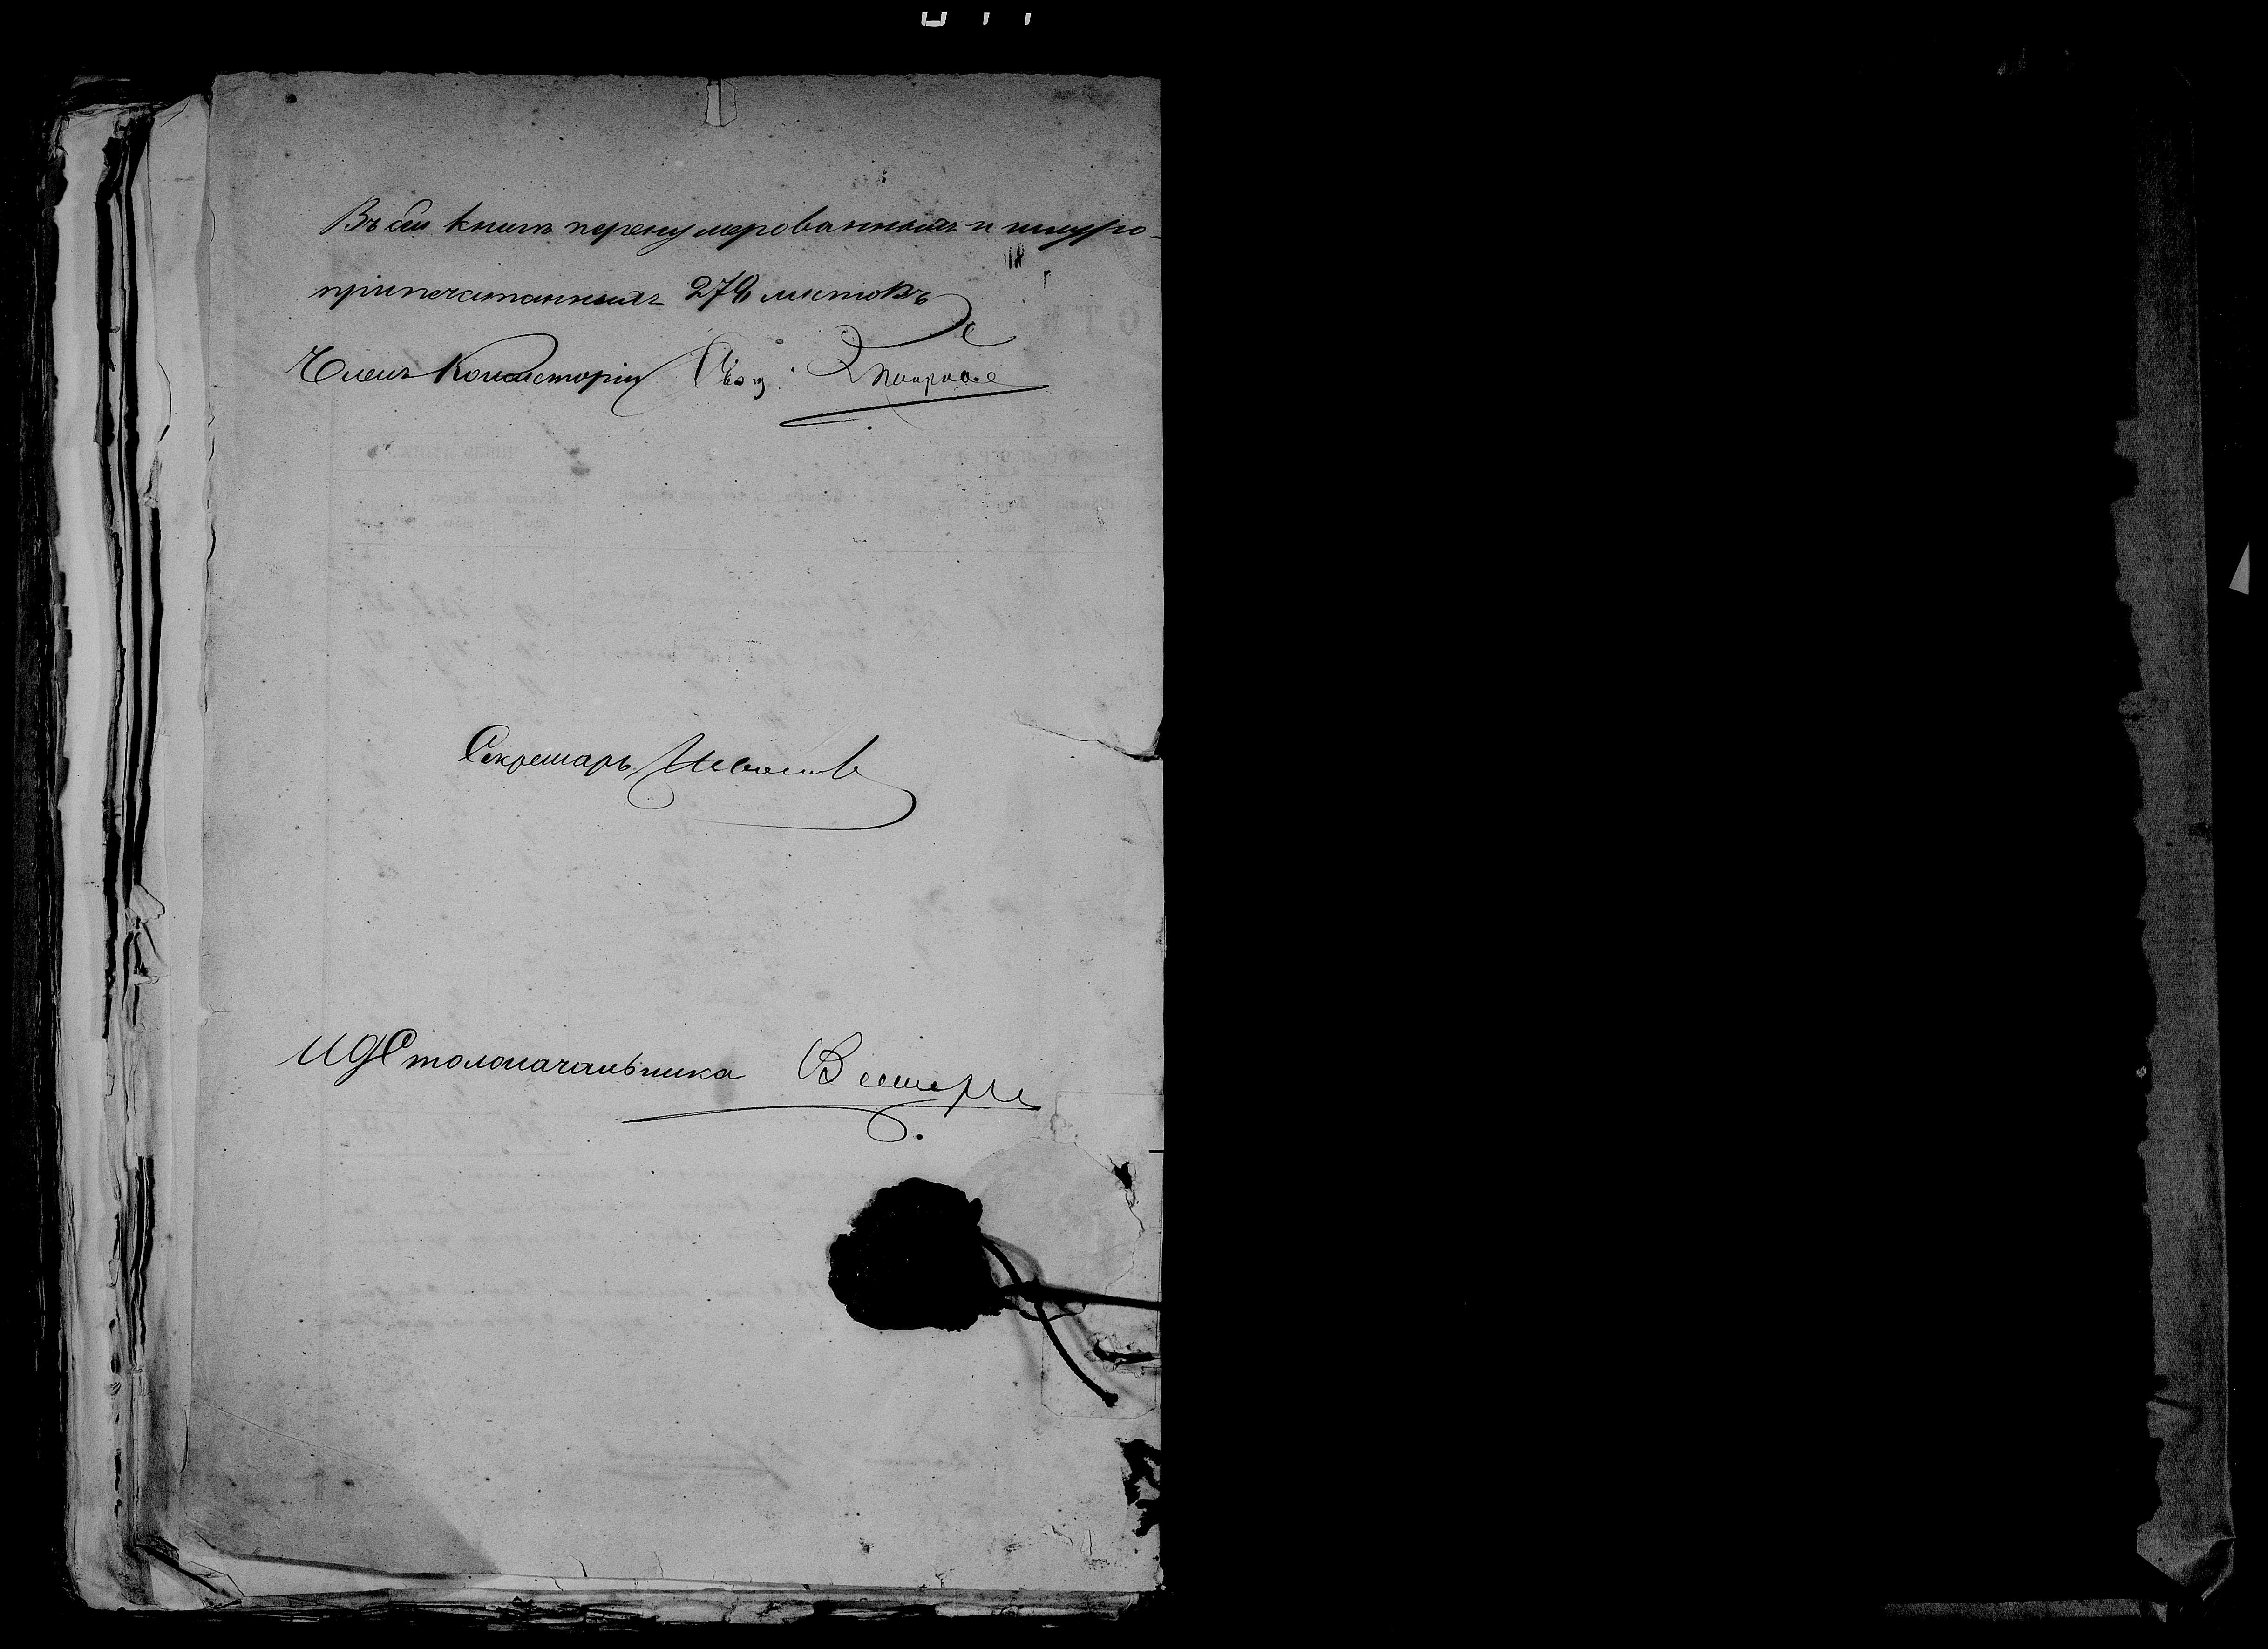 Въ сей книгѣ перенумерованныхъ и шнуро-
припечатанныхъ 279 листовъ
Членъ Консисторіи Свящ.
Секретарь
И Д Столоначальника